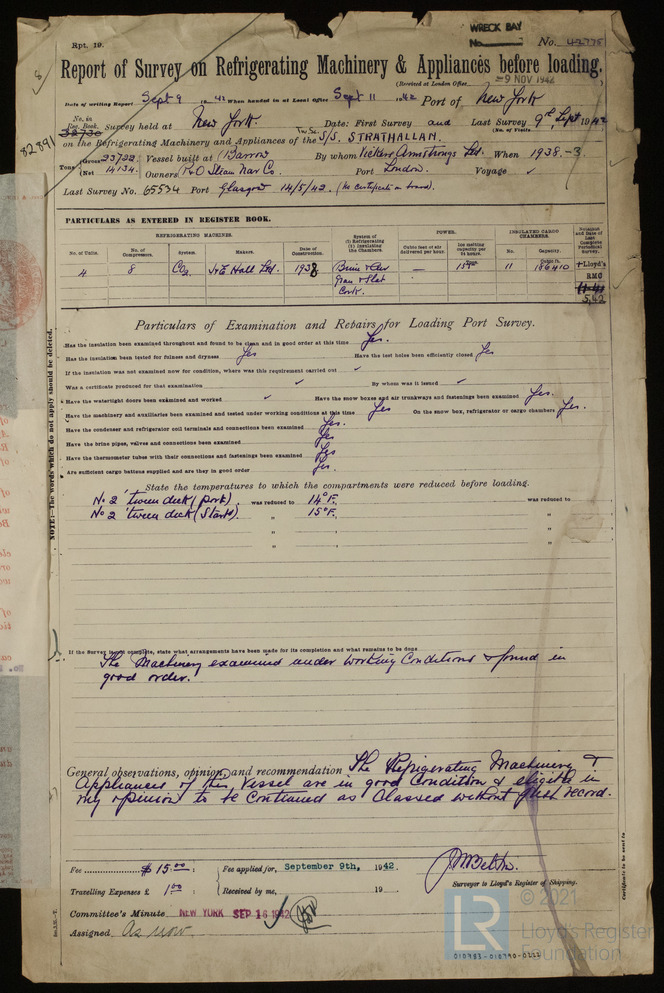 WRECK BAY
No.
Rpt. 19.
No. 42775
Report of Survey on Refrigerating Machinery & Appliances before loading.
(Received at London Office -9 NOV 1942
Date of writing Report Sept 9 1942 When handed in at Local Office Sept 11 1942 Port of New York
No. in Reg. Book. Survey held at New York Date: First Survey and Last Survey 9th Sept 1942
(No. of Visits
82891
on the Refrigerating Machinery and Appliances of the Tw Sc. S/S. STRATHALLAN.
Tons Gross 23722 Net 14134 Vessel built at Barrow By whom Vickers Armstrongs Ltd. When 1938-3
Owners P&O Steam Nav Co. Port London. Voyage ✓
Last Survey No. 65534 Port Glasgow 14/5/42. (No Certificate on board).
PARTICULARS AS ENTERED IN REGISTER BOOK.
REFRIGERATING MACHINES.
POWER.
INSULATED CARGO CHAMBERS.
No. of Units.
No. of Compressors.
System.
Makers.
Date of Construction.
System of (1) Refrigerating (2) Insulating the Chambers.
Cubic feet of air delivered per hour.
Ice melting capacity per 24 hours.
No.
Capacity.
4 8 CO2 J & E Hall Ltd. 1938 Brine & Air — 159 Tons. 11 Cubic ft. 186410 +Lloyd's
Gran & Slat RMC
Cork. 5,42
Particulars of Examination and Repairs for Loading Port Survey.
Has the insulation been examined throughout and found to be clean and in good order at this time Yes.
Has the insulation been tested for fulness and dryness Yes Have the test holes been efficiently closed Yes
If the insulation was not examined now for condition, where was this requirement carried out ✓
Was a certificate produced for that examination ✓ By whom was it issued ✓
Have the watertight doors been examined and worked ✓ Have the snow boxes and air trunkways and fastenings been examined Yes.
Have the machinery and auxiliaries been examined and tested under working conditions at this time Yes On the snow box, refrigerator or cargo chambers Yes.
Have the condenser and refrigerator coil terminals and connections been examined Yes.
Have the brine pipes, valves and connections been examined Yes
Have the thermometer tubes with their connections and fastenings been examined Yes
Are sufficient cargo battens supplied and are they in good order Yes.
NOTE:—The words which do not apply should be deleted.
State the temperatures to which the compartments were reduced before loading.
No 2 'tween deck (port) was reduced to 14°F. was reduced to
No 2 'tween deck (Starb) " 15°F. "
" "
" "
If the Survey is not complete, state what arrangements have been made for its completion and what remains to be done
The Machinery examined under working Conditions & found in
good order.
General observations, opinion, and recommendation The Refrigerating Machinery &
Appliances of this Vessel are in good Condition & eligible in
my opinion to be Continued as Classed without fresh record.
Fee $ 15.00 : Fee applied for, September 9th, 1942.
Travelling Expenses £ 1.00 : Received by me, 19
Surveyor to Lloyd's Register of Shipping.
Committee's Minute NEW YORK SEP 16 1942
Assigned As now
Certificate to be sent to
© 2021
LR
Lloyd's Register
Foundation
010783-010790-0222